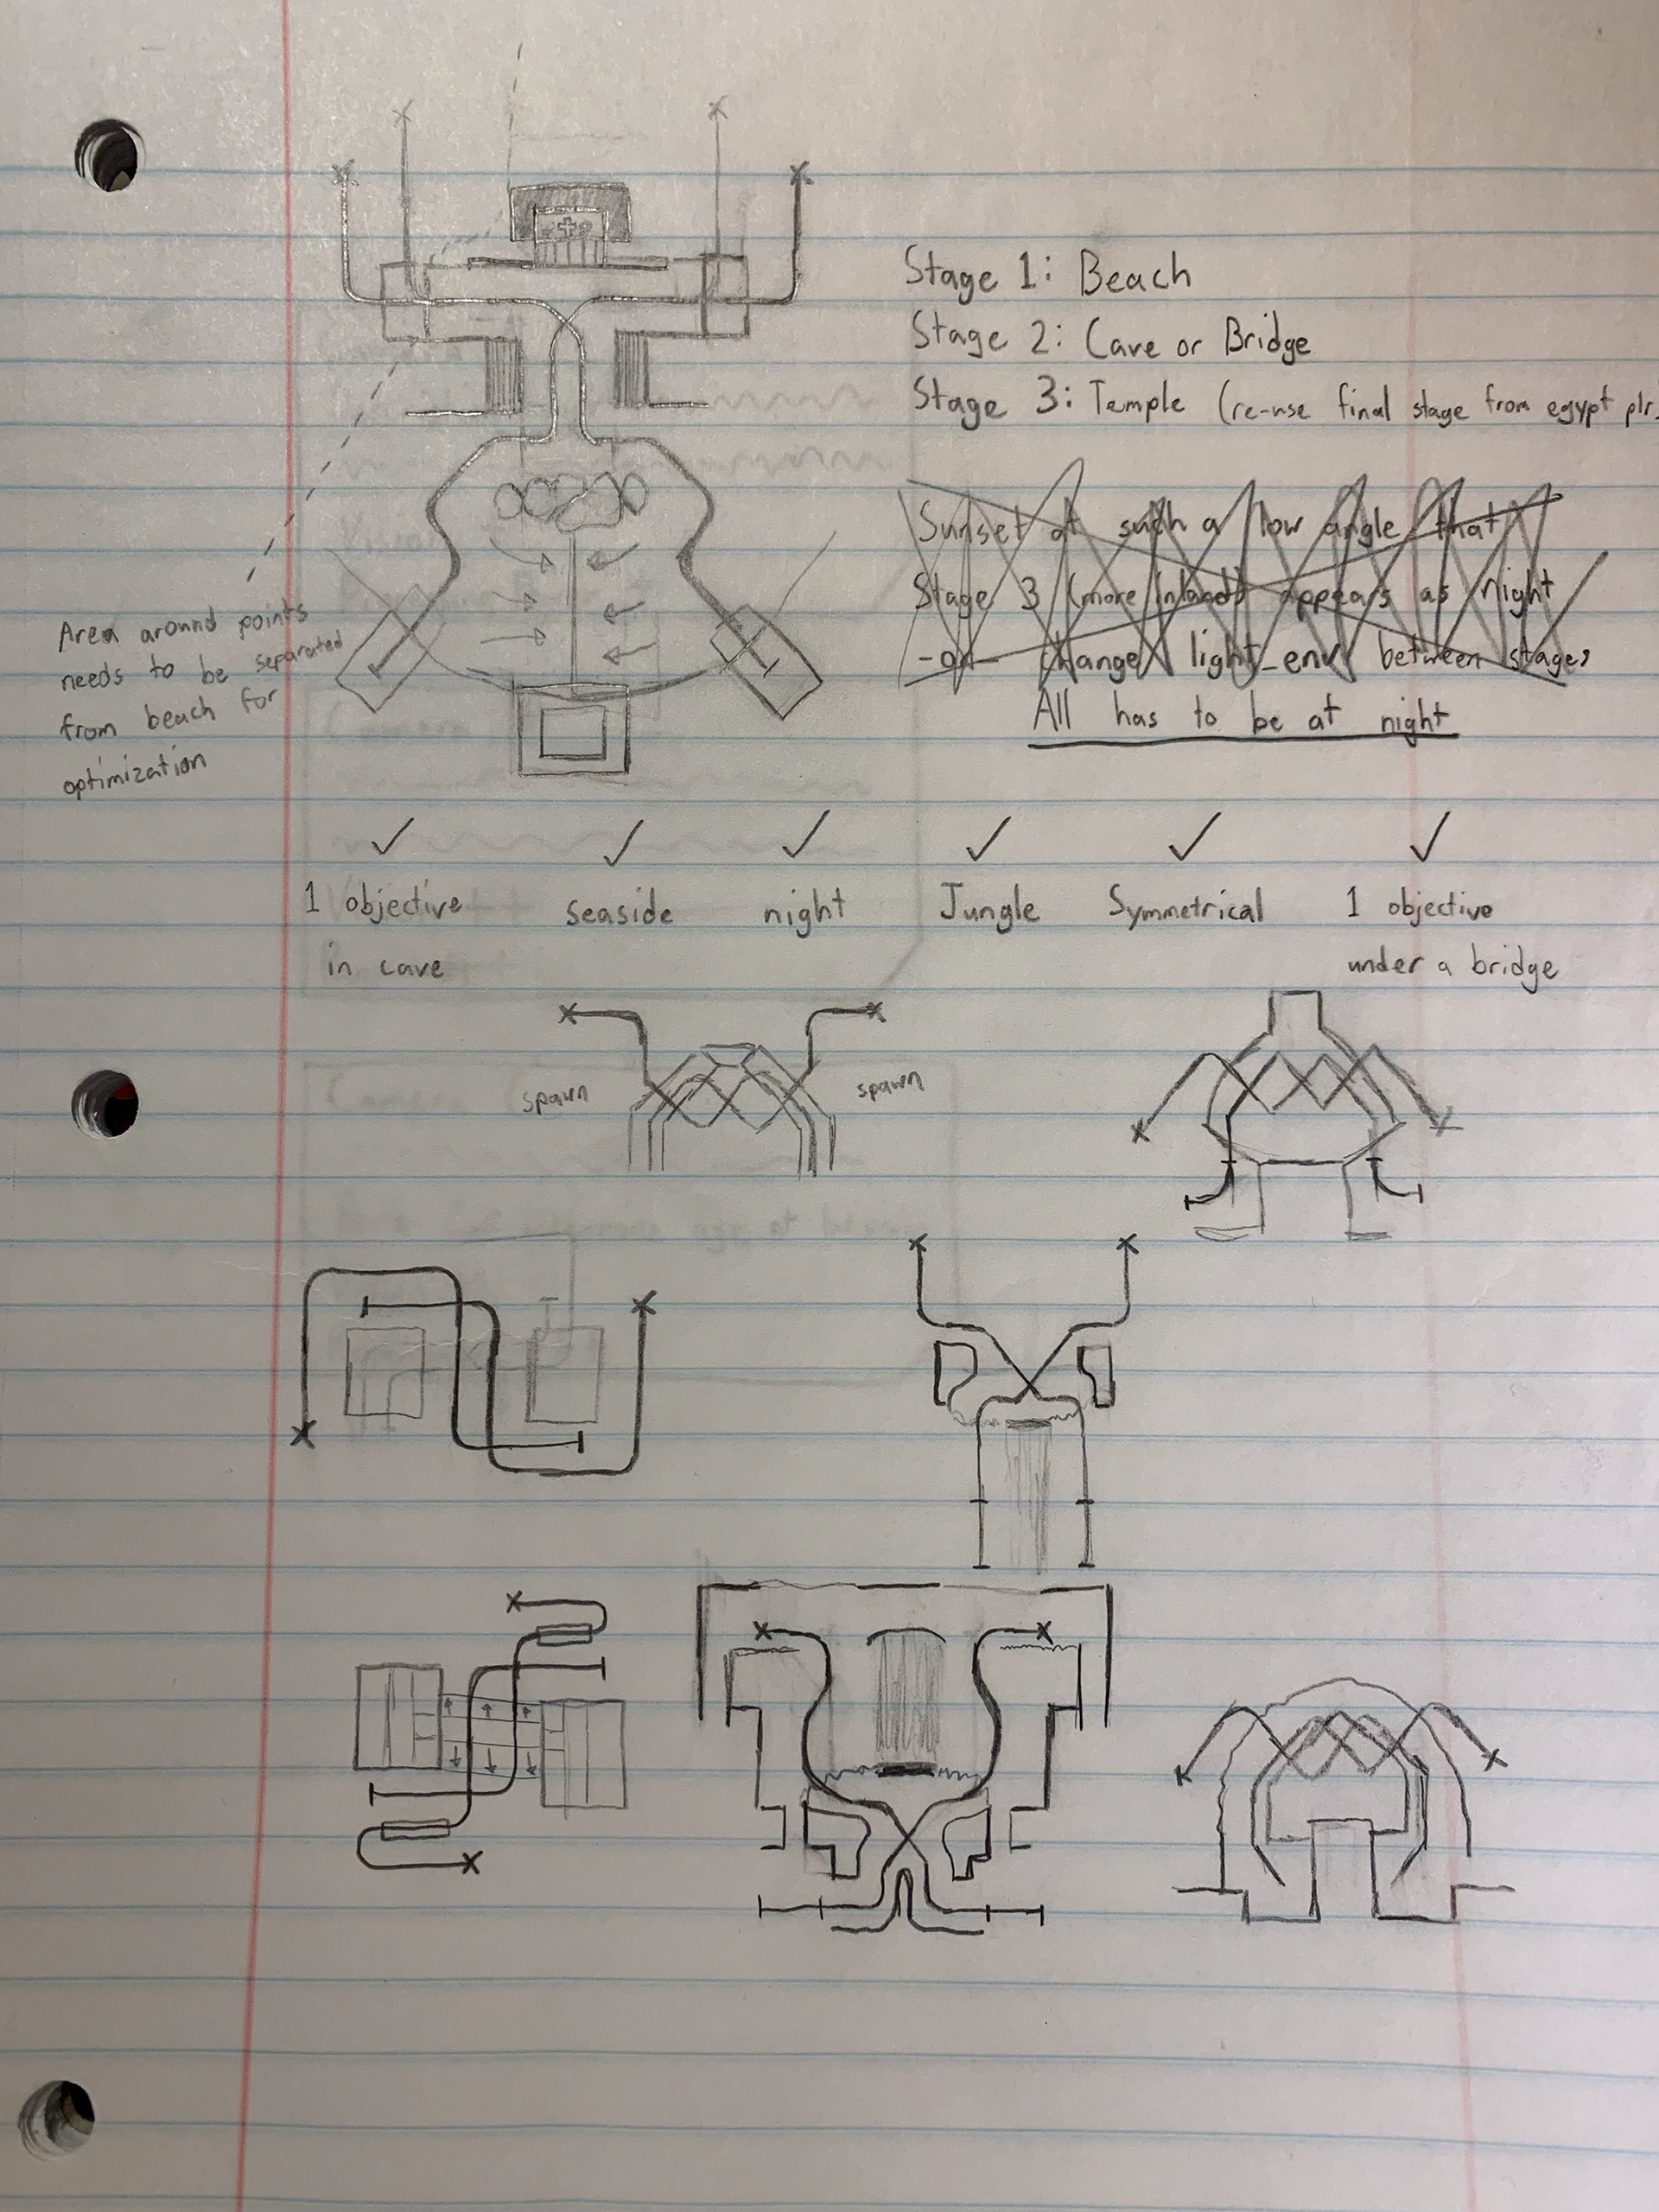 Stage 1: Beach
Stage 2: Cave or Bridge
Stage 3: Temple (re-use final stage from egypt plr
Sunset at such a low angle that
Stage 3 (more inland) appears as night
-or- change light_env between stages
All has to be at night
Area around points
needs to be separated
from beach for
optimization
1 objective
in cave
seaside
night
Jungle
Symmetrical
1 objective
under a bridge
spawn
spawn